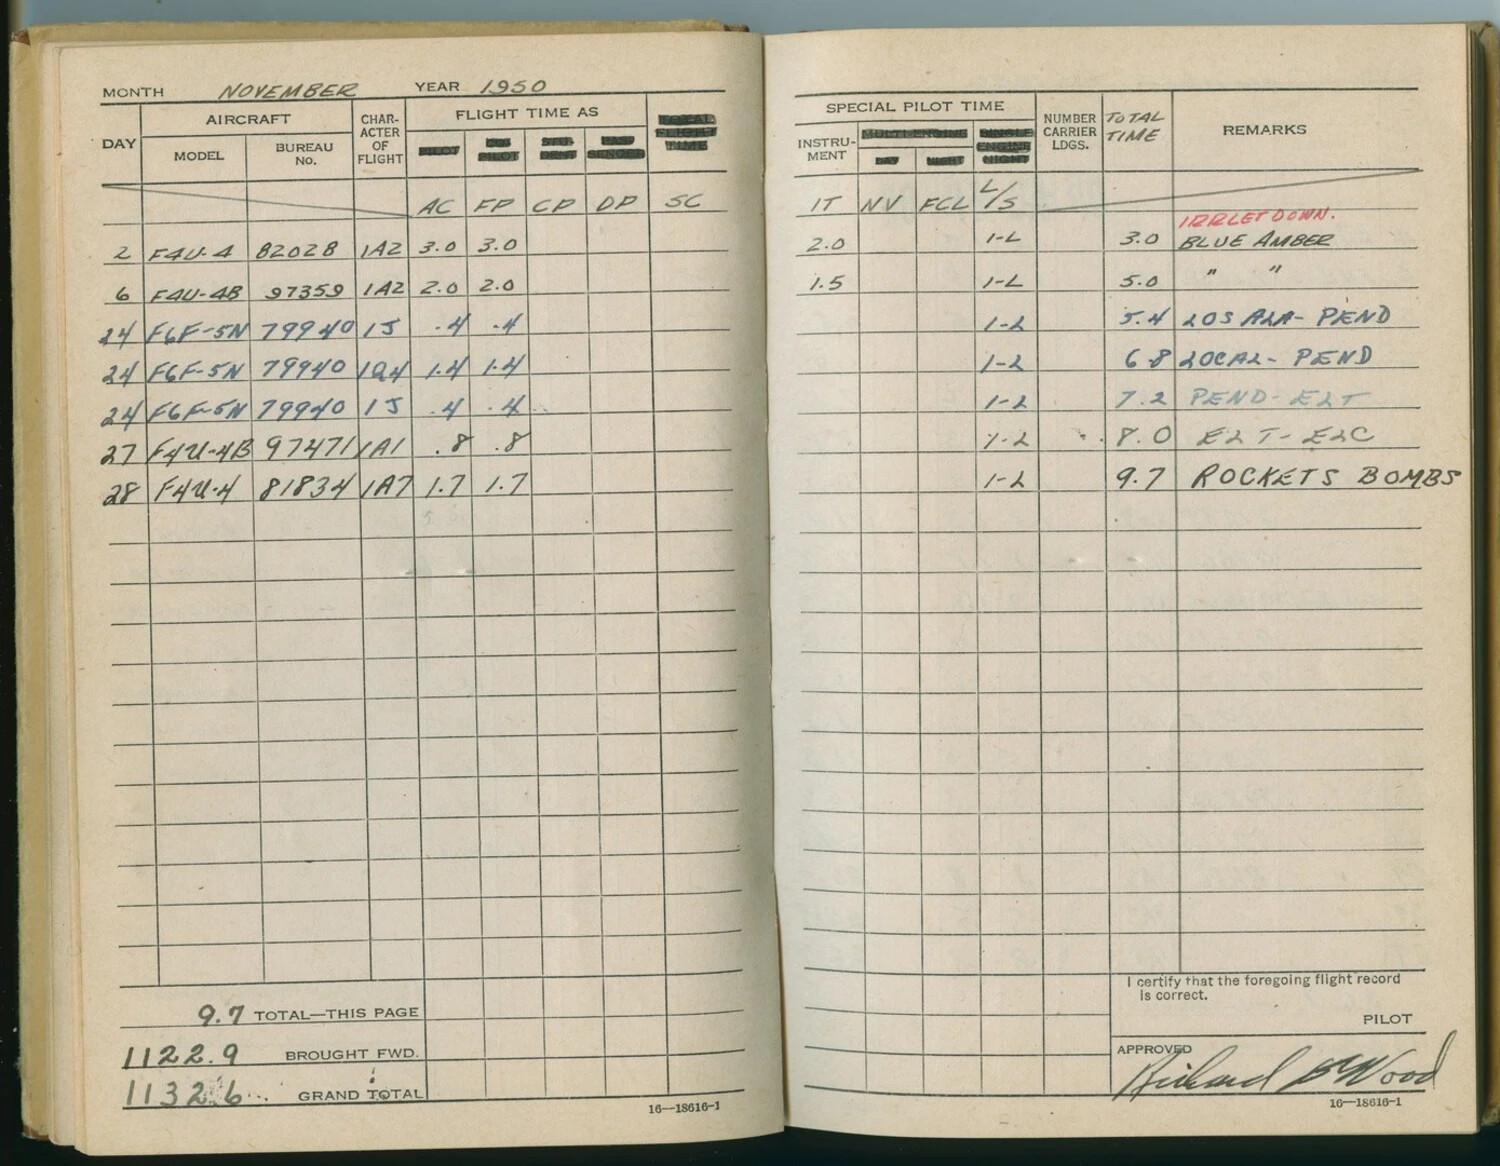 MONTH NOVEMBER YEAR 1950
DAY AIRCRAFT CHAR-ACTER OF FLIGHT FLIGHT TIME AS TOTAL FLIGHT TIME
MODEL BUREAU NO. PILOT CO-PILOT STU-DENT PAS-SENGER
AC FP CP DP SC
2 F4U-4 82028 1A2 3.0 3.0
6 F4U-4B 97359 1A2 2.0 2.0
24 F6F-5N 79940 1J .4 .4
24 F6F-5N 79940 1Q4 1.4 1.4
24 F6F-5N 79940 1J .4 .4
27 F4U-4B 97471 1A1 .8 .8
28 F4U-4 81834 1A7 1.7 1.7
9.7 TOTAL—THIS PAGE
1122.9 BROUGHT FWD.
1132.6 GRAND TOTAL
16—18616-1
SPECIAL PILOT TIME NUMBER CARRIER LDGS. TOTAL TIME REMARKS
INSTRU-MENT MULTI-ENGINE SINGLE ENGINE NIGHT
DAY NIGHT
IT NV FCL L/S
IRRLETDOWN.
2.0 1-L 3.0 BLUE AMBER
1.5 1-L 5.0 " "
1-L 5.4 LOS ALA- PEND
1-L 6.8 LOCAL- PEND
1-L 7.2 PEND- ELT
1-L 8.0 ELT- ELC
1-L 9.7 ROCKETS BOMBS
I certify that the foregoing flight record
is correct.
PILOT
APPROVED
Richard Wood
16—18616-1